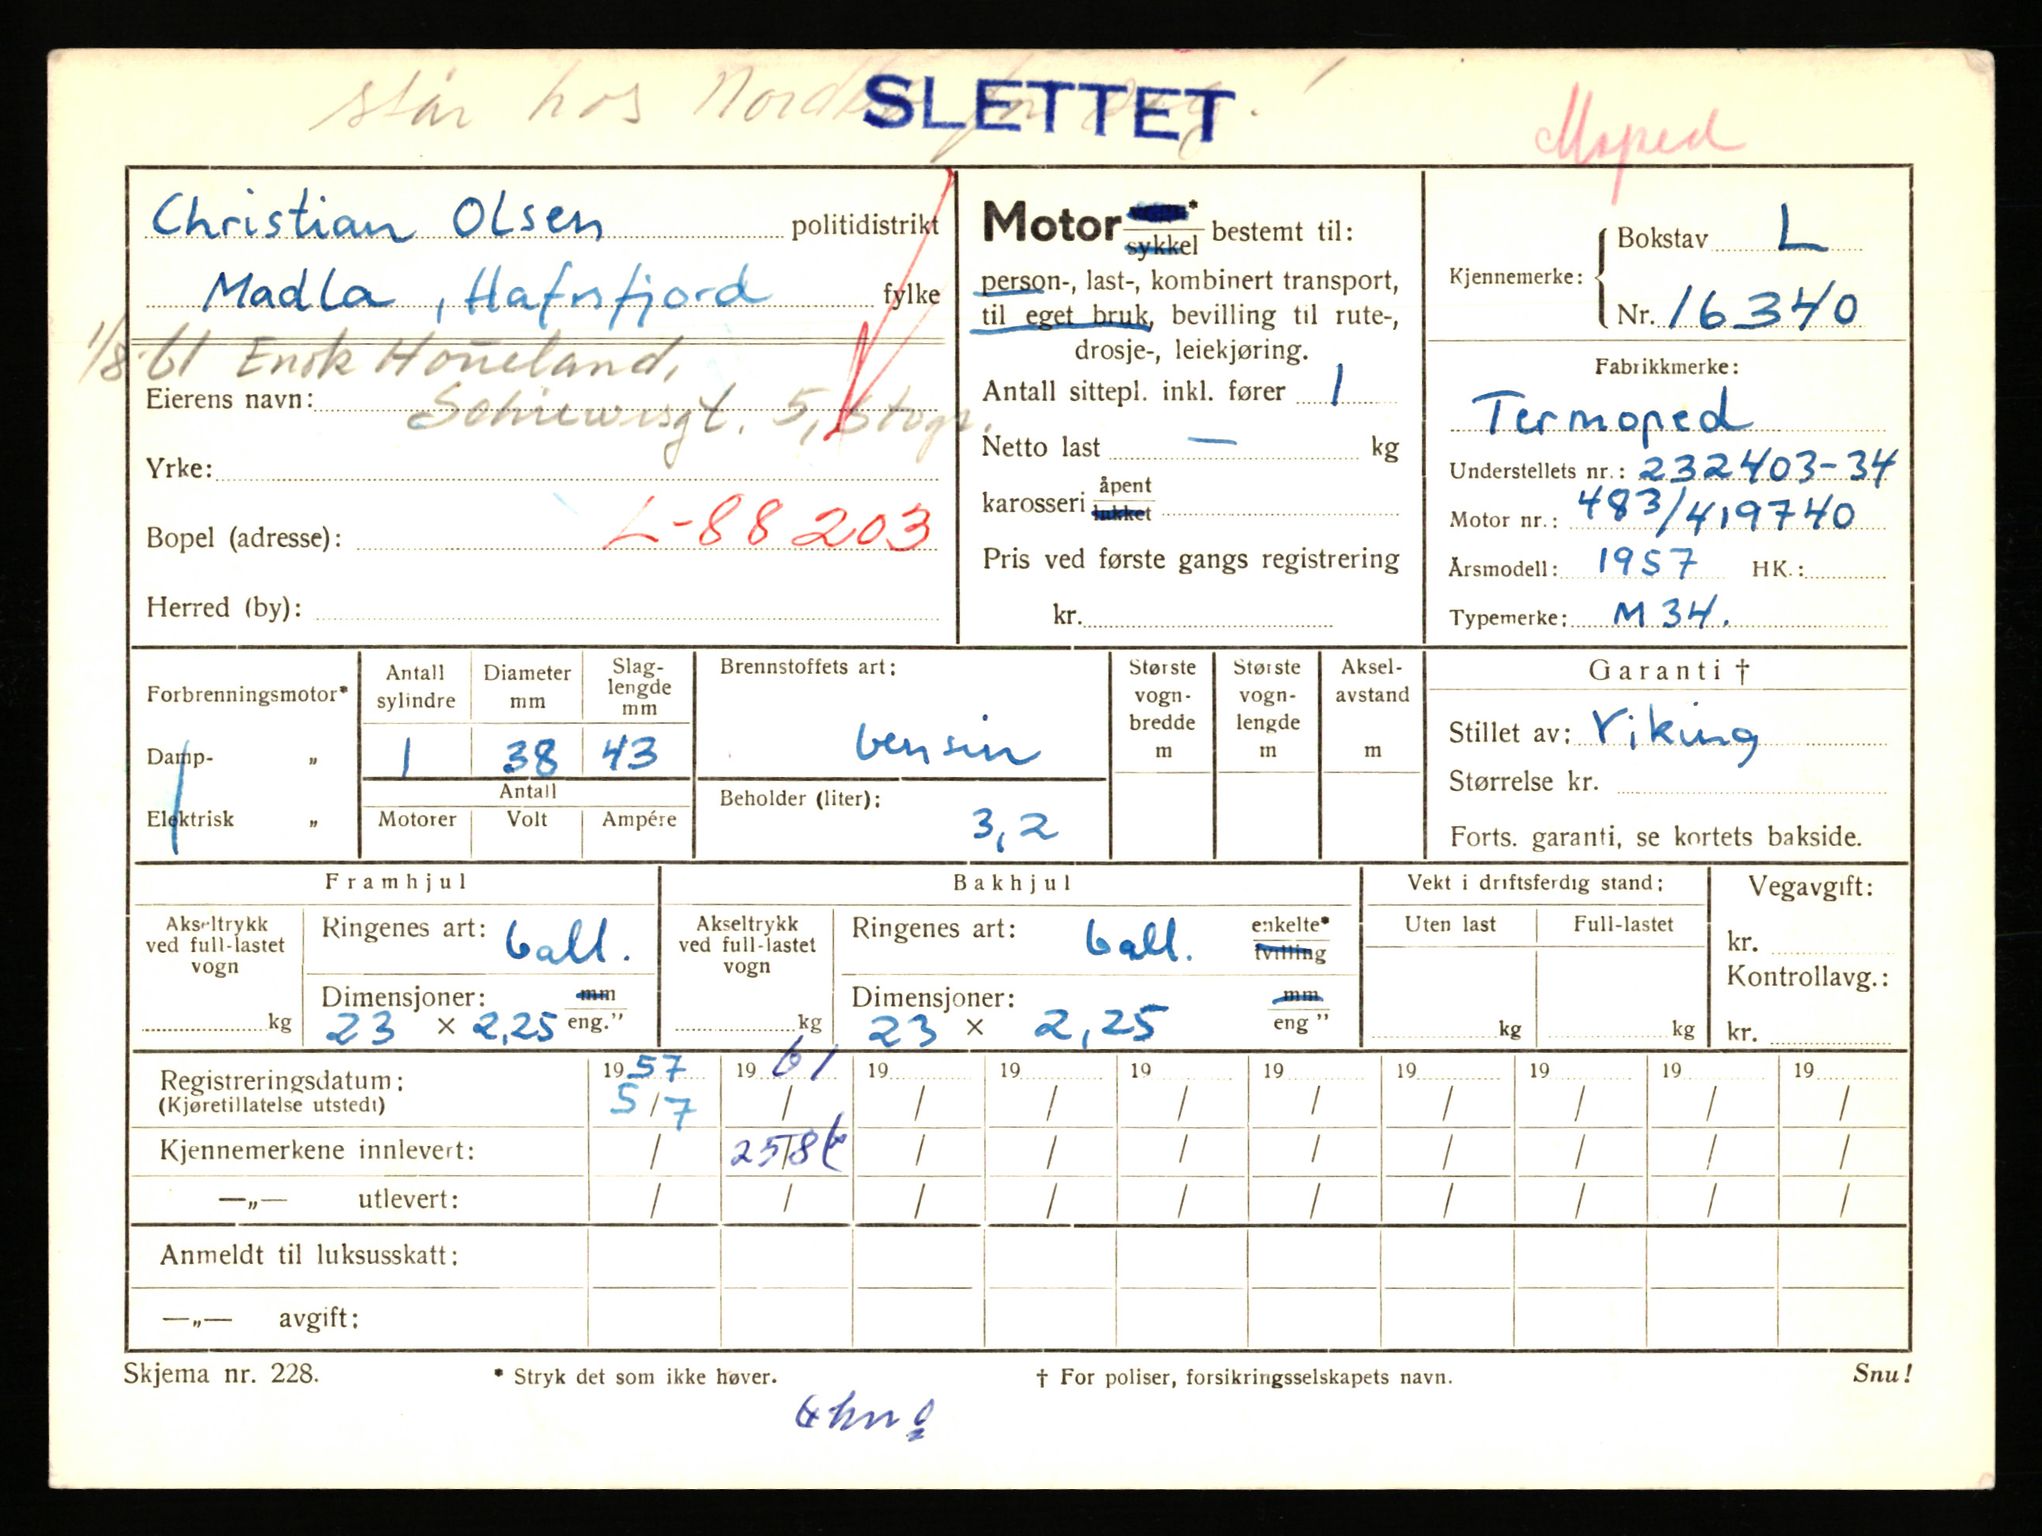 står hos
SLETTET
Moped
Christian Olsen politidistrikt
Madla, Hafrsfjord fylke
1/8-61
Eierens navn: 5, Stvgr.
Yrke:
L-88203
Bopel (adresse):
Herred (by):
Motor * sykkel bestemt til:
person-, last-, kombinert transport,
til eget bruk, bevilling til rute-,
drosje-, leiekjøring.
Antall sittepl. inkl. fører 1
Netto last — kg
karosseri åpent lukket
Pris ved første gangs registrering
kr.
Kjennemerke: Bokstav L
Nr. 16340
Fabrikkmerke:
Termoped
Understellets nr.: 232403-34
Motor nr.: 483/419740
Årsmodell: 1957 HK.:
Typemerke: M 34.
Forbrenningsmotor*
Damp- „
Elektrisk „
Antall sylindre Diameter mm Slag-lengde mm
1 38 43
Antall
Motorer Volt Ampére
Brennstoffets art:
bensin
Beholder (liter):
3,2
Største vogn-bredde m
Største vogn-lengde m
Aksel-avstand m
Garanti †
Stillet av: Viking
Størrelse kr.
Forts. garanti, se kortets bakside.
Framhjul
Akseltrykk ved full-lastet vogn
kg
Ringenes art: ball.
Dimensjoner: mm
23 × 2,25 eng."
Bakhjul
Akseltrykk ved full-lastet vogn
kg
Ringenes art: ball. enkelte* tvilling
Dimensjoner: mm
23 × 2,25 eng "
Vekt i driftsferdig stand:
Uten last Full-lastet
kg kg
Vegavgift:
kr.
Kontrollavg.:
kr.
Registreringsdatum: 1957 1961 19 19 19 19 19 19 19 19
(Kjøretillatelse utstedt) 5/7 / / / / / / / / /
Kjennemerkene innlevert: / 25/8 / / / / / / / /
—„— utlevert: / / / / / / / / / /
Anmeldt til luksusskatt:
—„— avgift:
Skjema nr. 228. * Stryk det som ikke høver. † For poliser, forsikringsselskapets navn. Snu!